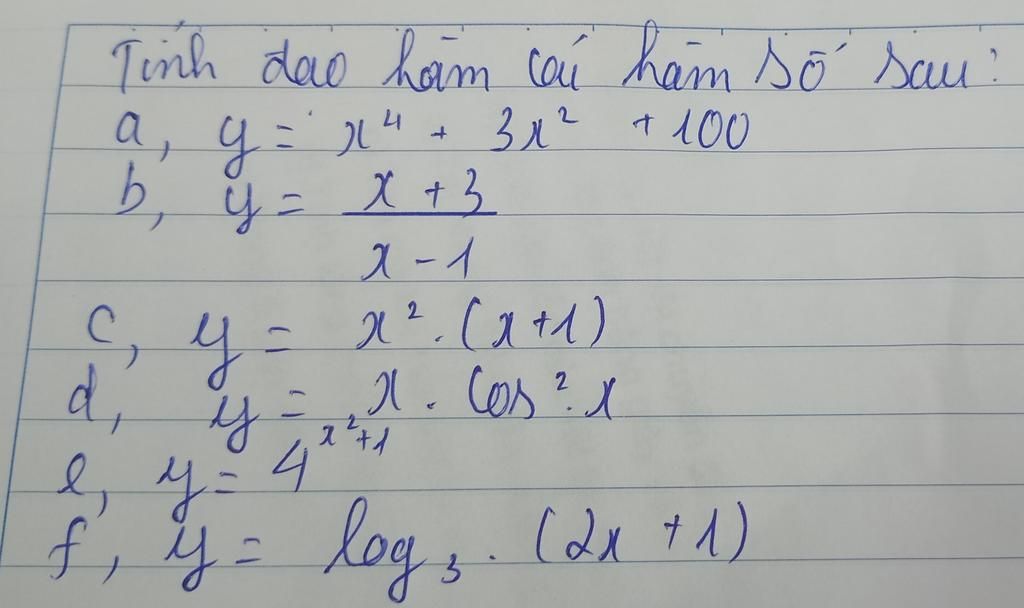 Tính đao hàm các hàm số sau:
a, y = x⁴ + 3x² + 100
b, y = x + 3
x - 1
c, y = x² . (x+1)
d, y = x . cos² . x
e, y = 4^(x²+1)
f, y = log₃ . (2x + 1)